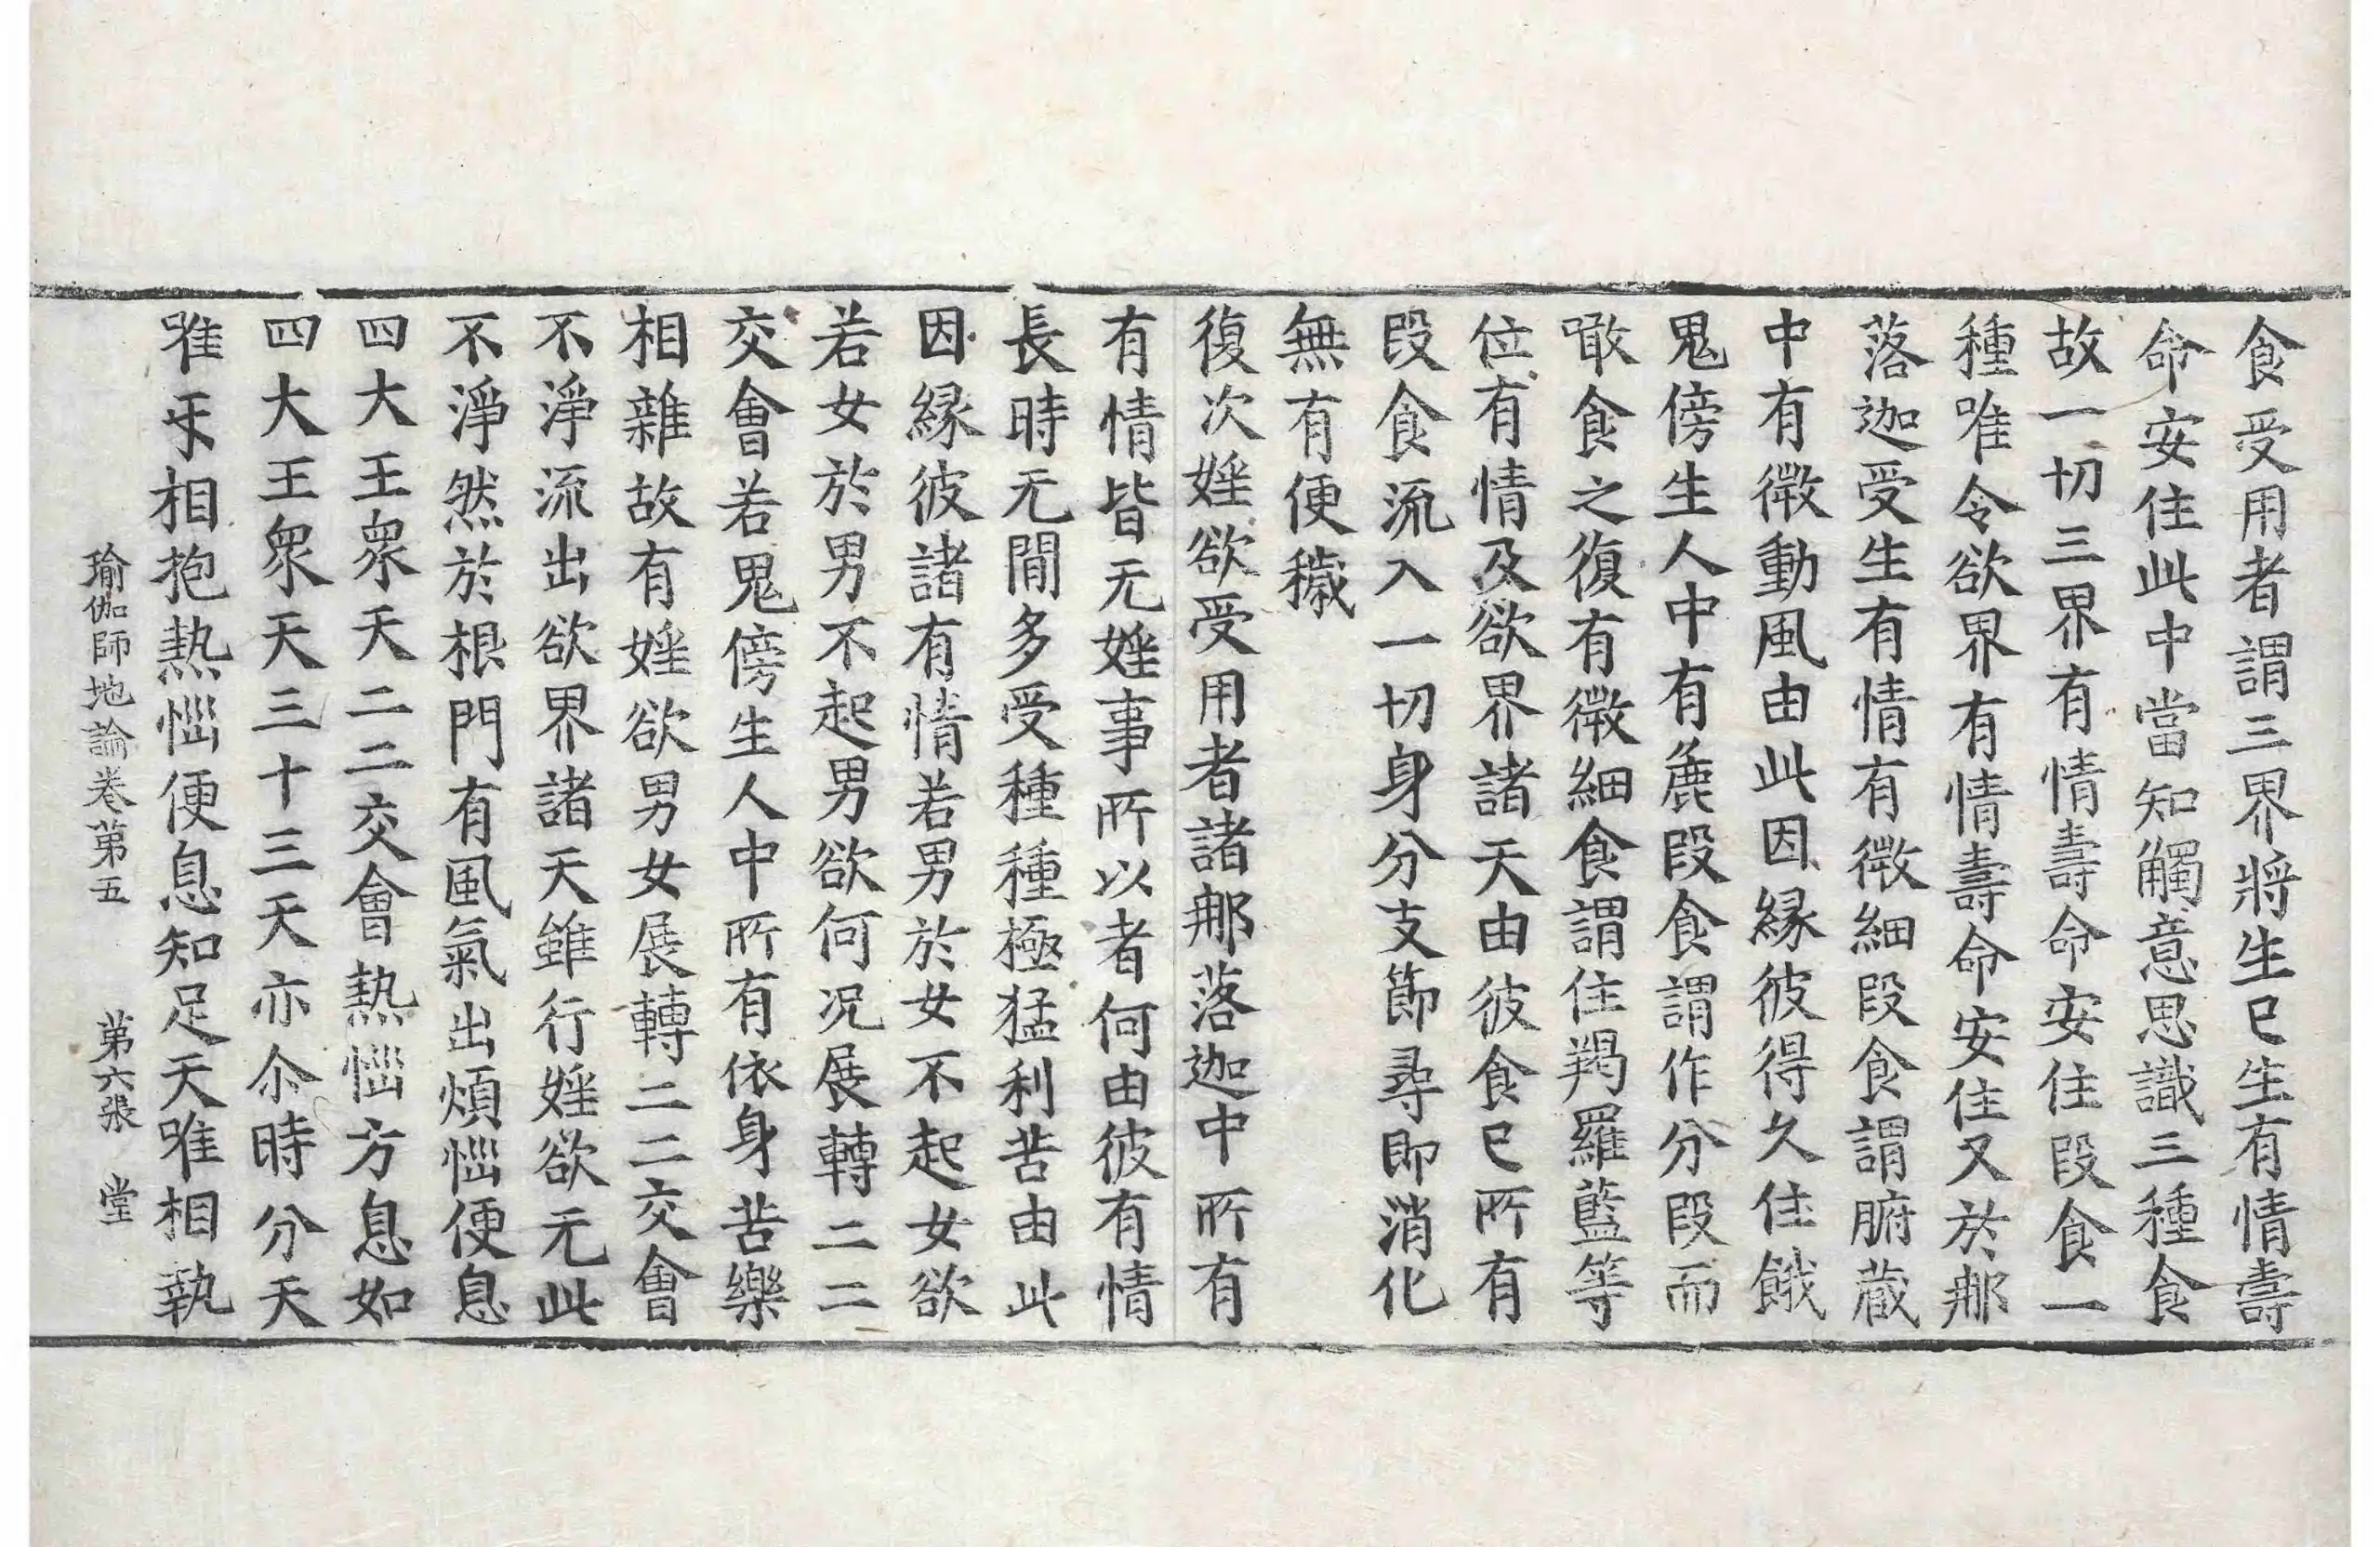 食受用者謂三界將生已生有情壽
命安住此中當知觸意思識三種食
故一切三界有情壽命安住段食一
種唯令欲界有情壽命安住又於那
落迦受生有情有微細段食謂腑藏
中有微動風由此因緣彼得久住餓
鬼傍生人中有麁段食謂作分段而
噉食之復有微細食謂住羯羅藍等
位有情及欲界諸天由彼食已所有
段食流入一切身分支節尋即消化
無有便穢
復次婬欲受用者諸那落迦中所有
有情皆无婬事所以者何由彼有情
長時无間多受種種極猛利苦由此
因緣彼諸有情若男於女不起女欲
若女於男不起男欲何况展轉二二
交會若鬼傍生人中所有依身苦樂
相雜故有婬欲男女展轉二二交會
不淨流出欲界諸天雖行婬欲无此
不淨然於根門有風氣出煩惱便息
四大王衆天二二交會熱惱方息如
四大王衆天三十三天亦尒時分天
唯㸦相抱熱惱便息知足天唯相執
瑜伽師地論卷第五 第六張 堂